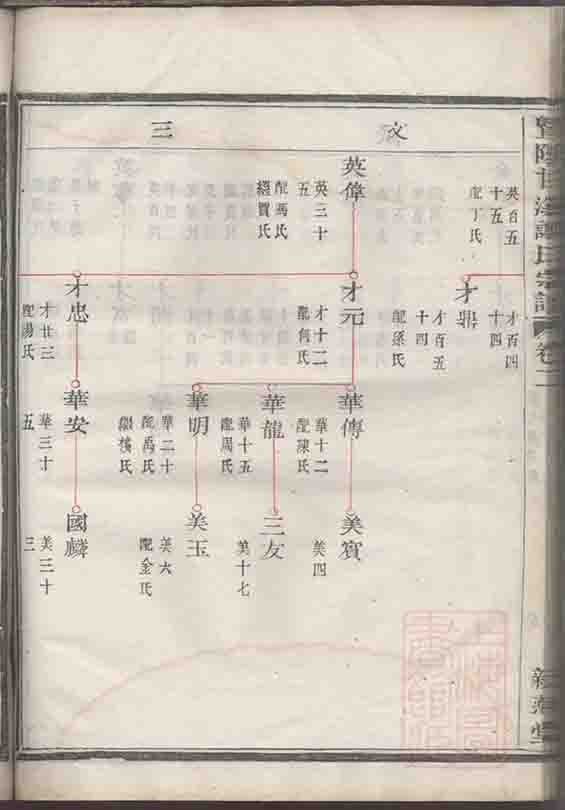 卷二
文
三
英百五
十五
配丁氏
英偉
英三十
五
配馮氏
繼賈氏
才鼎
才百四
十四
才百五
十四
配孫氏
才元
才十二
配何氏
才忠
才廿三
配湯氏
華傳
華十二
配陳氏
華龍
華十五
配周氏
華明
華二十
配禹氏
繼樓氏
華安
華三十
五
美寶
美四
三友
美十七
美玉
美六
配金氏
國麟
美三十
三